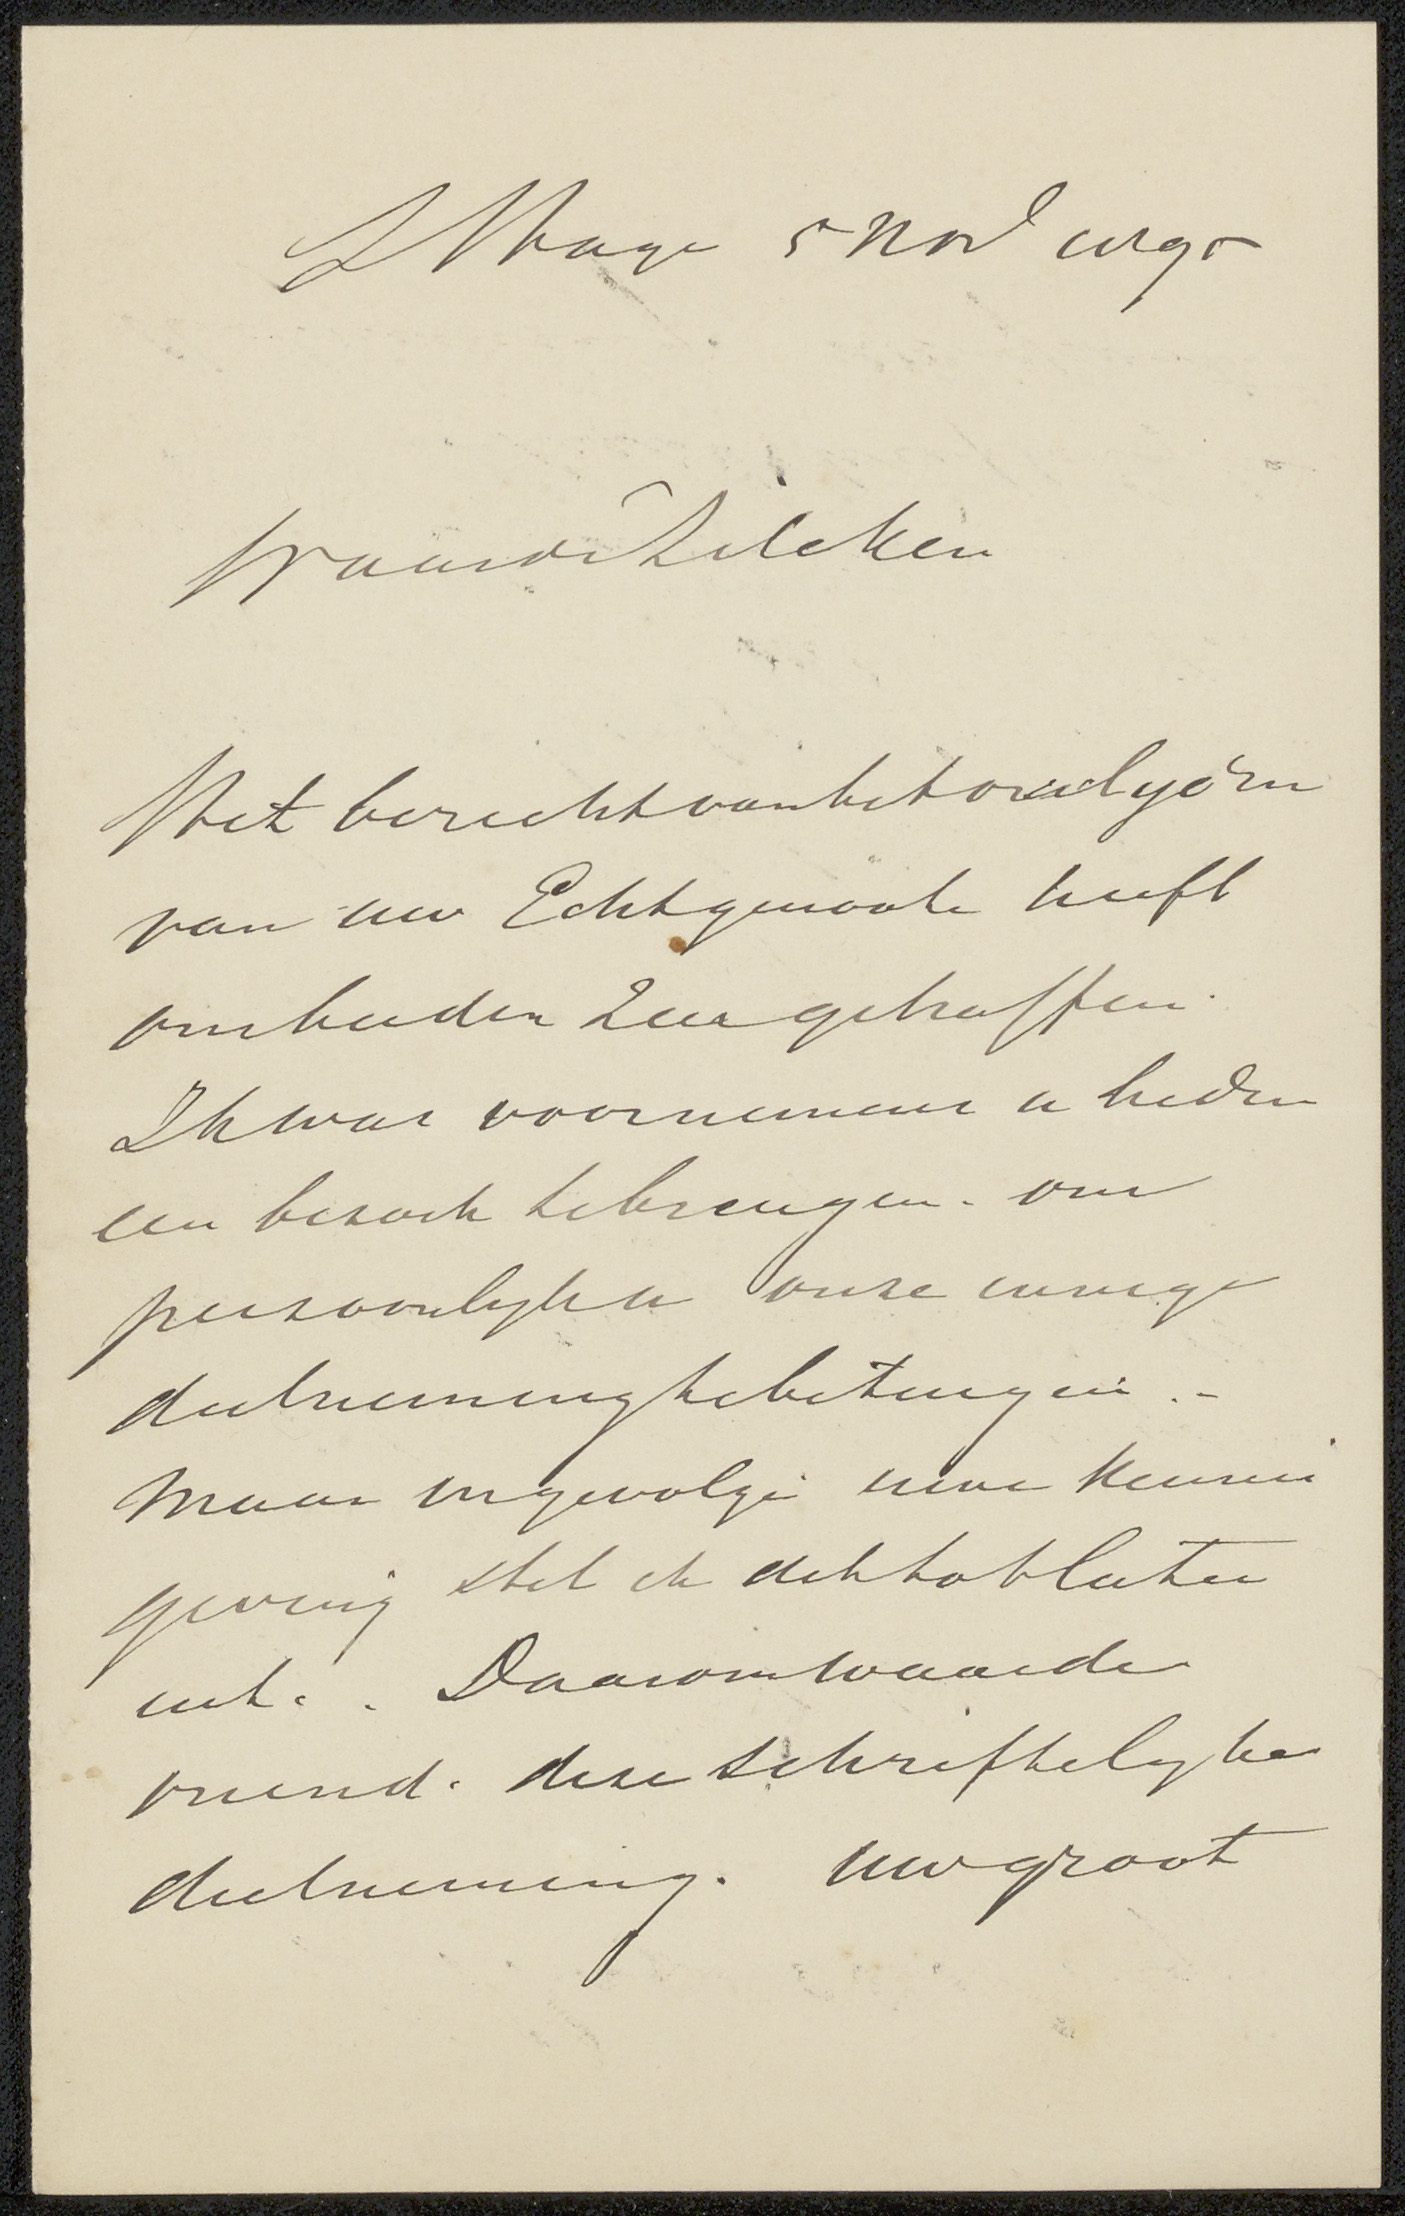 S Hage 5 Nov
Waarde Zilcken
Het bericht van het overlyden
van uw Echtgenoote heeft
ons beiden zeer getroffen.
Ik was voornemens u heden
een bezoek te brengen. om
persoonlyk u onze innige
deelneming te betuigen. -
Maar ingevolge uwe kennis
geving stel ik dit tot later
uit. . Daarom waarde
vriend. deze schriftelyke
deelneming. uw groot